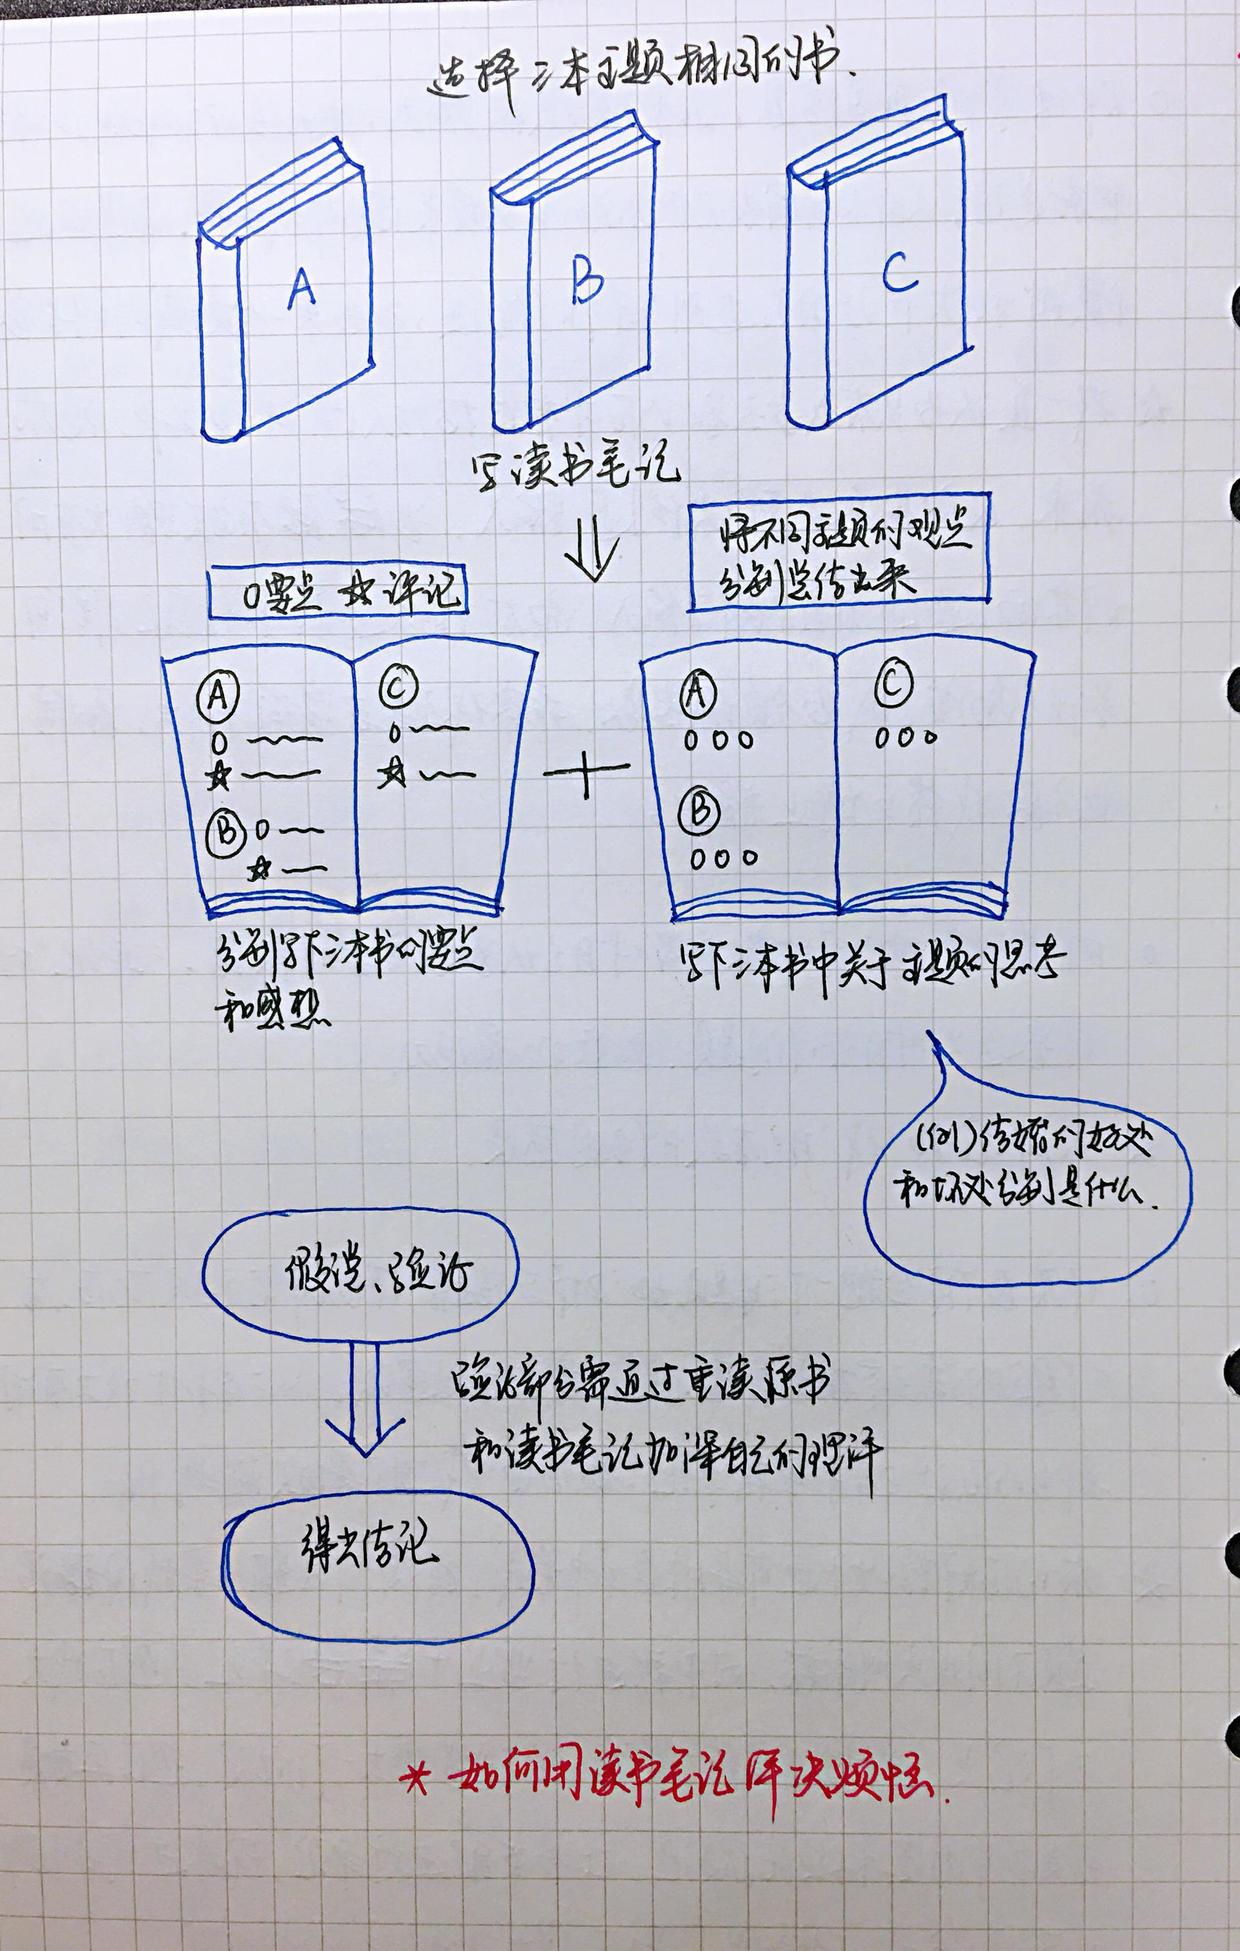 选择三本主题相同的书.
A
B
C
写读书笔记
将不同主题的观点
分别总结出来
O要点 ☆评记
A
O
☆
B O
☆
C
O
☆
+
A
O O O
B
O O O
C
O O O
分别写下三本书的要点
和感想
写下三本书中关于主题的思考
(例)结婚的好处
和坏处分别是什么.
假说、验论
验论部分需通过重读原书
和读书笔记加深自己的理解
得出结论
* 如何用读书笔记解决烦恼.